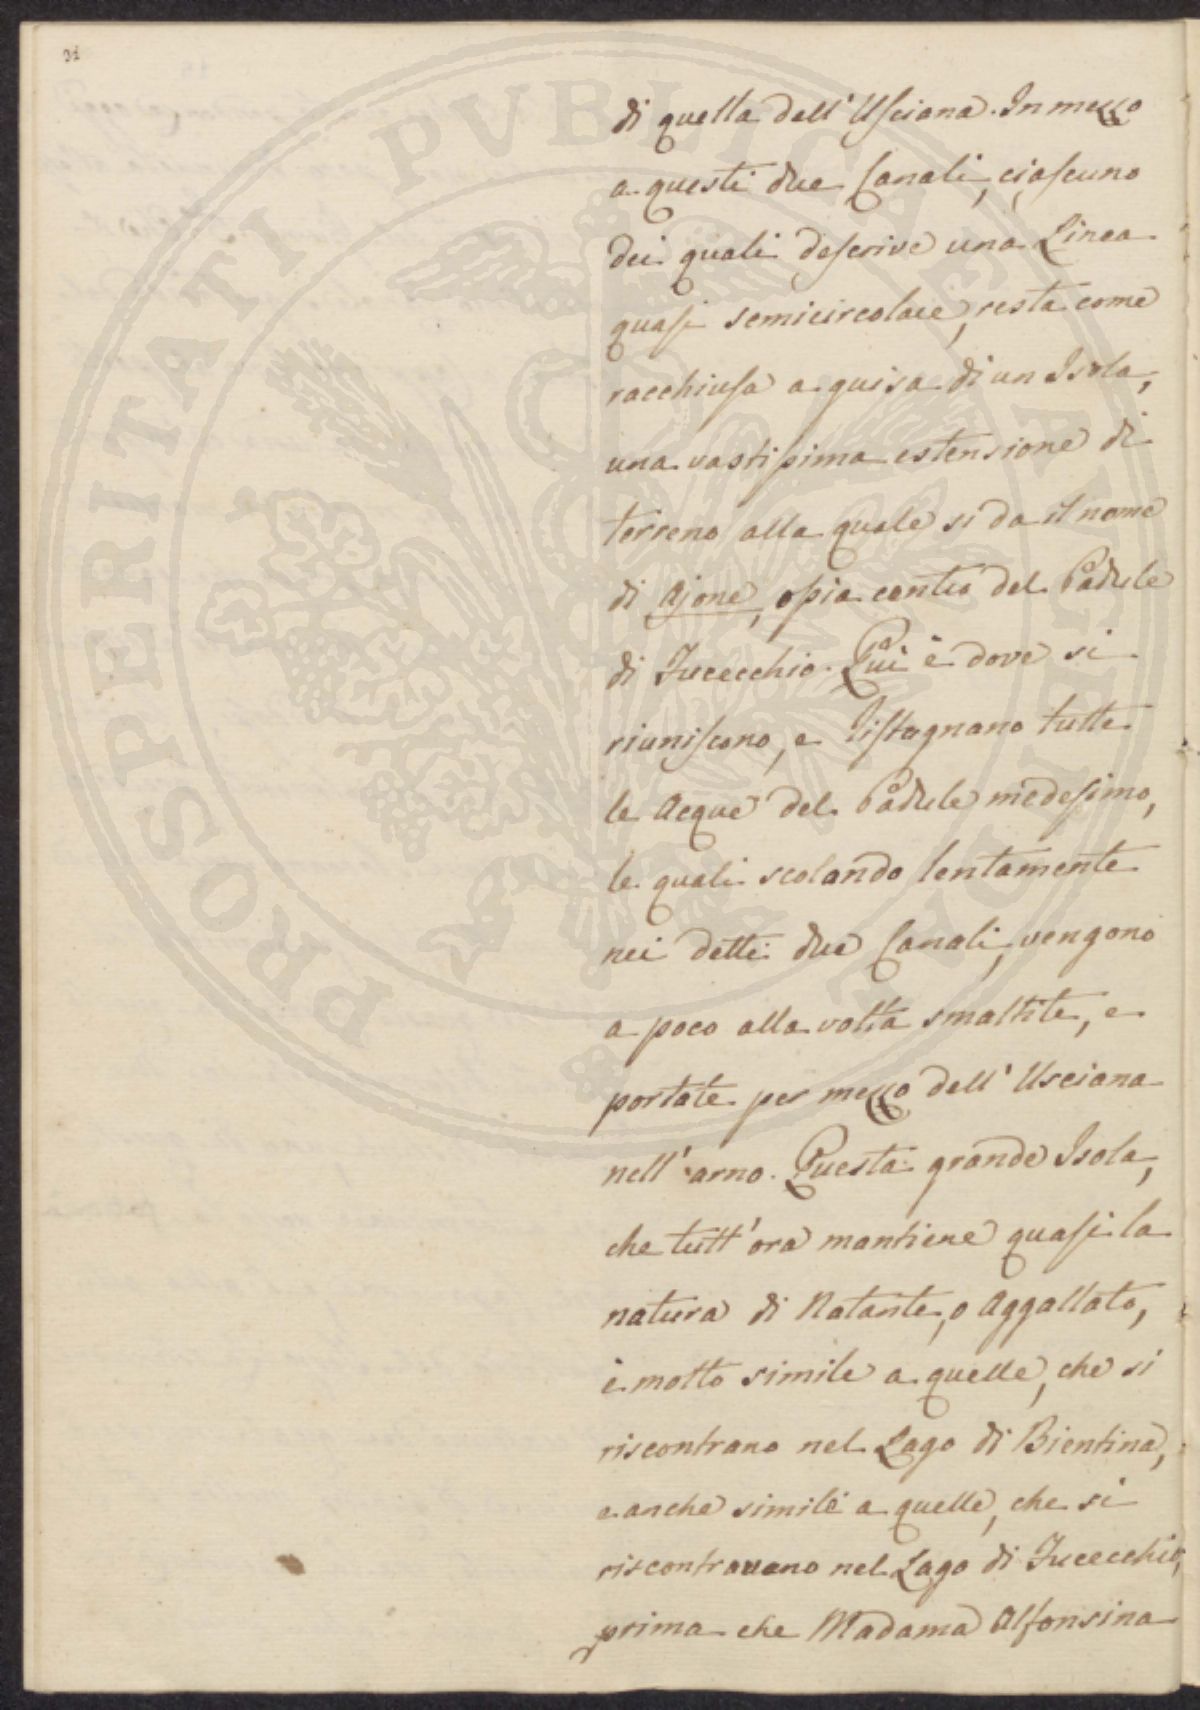 di quella dell'Usciana. In mezzo
a questi due Canali, ciascuno
dei quali descrive una Linea
quasi semicircolare, resta come
racchiusa a guisa di un Isola,
una vastissima estensione di
terreno alla quale si da il nome
di Ajone, ossia centro del Padule
di Fucecchio. Qui è dove si
riuniscono, e ristagnano tutte
le Acque del Padule medesimo,
le quali scolando lentamente
nei detti due Canali, vengono
a poco alla volta smaltite, e
portate per mezzo dell'Usciana
nell'arno. Questa grande Isola,
che tutt'ora mantiene quasi la
natura di Natante, o Aggallato,
è molto simile a quelle, che si
riscontrano nel Lago di Bientina,
e anche simile a quelle, che si
riscontravano nel Lago di Fucecchio,
prima che Madama Alfonsina
PROSPERITATI PVBLICAE AVGENDAE